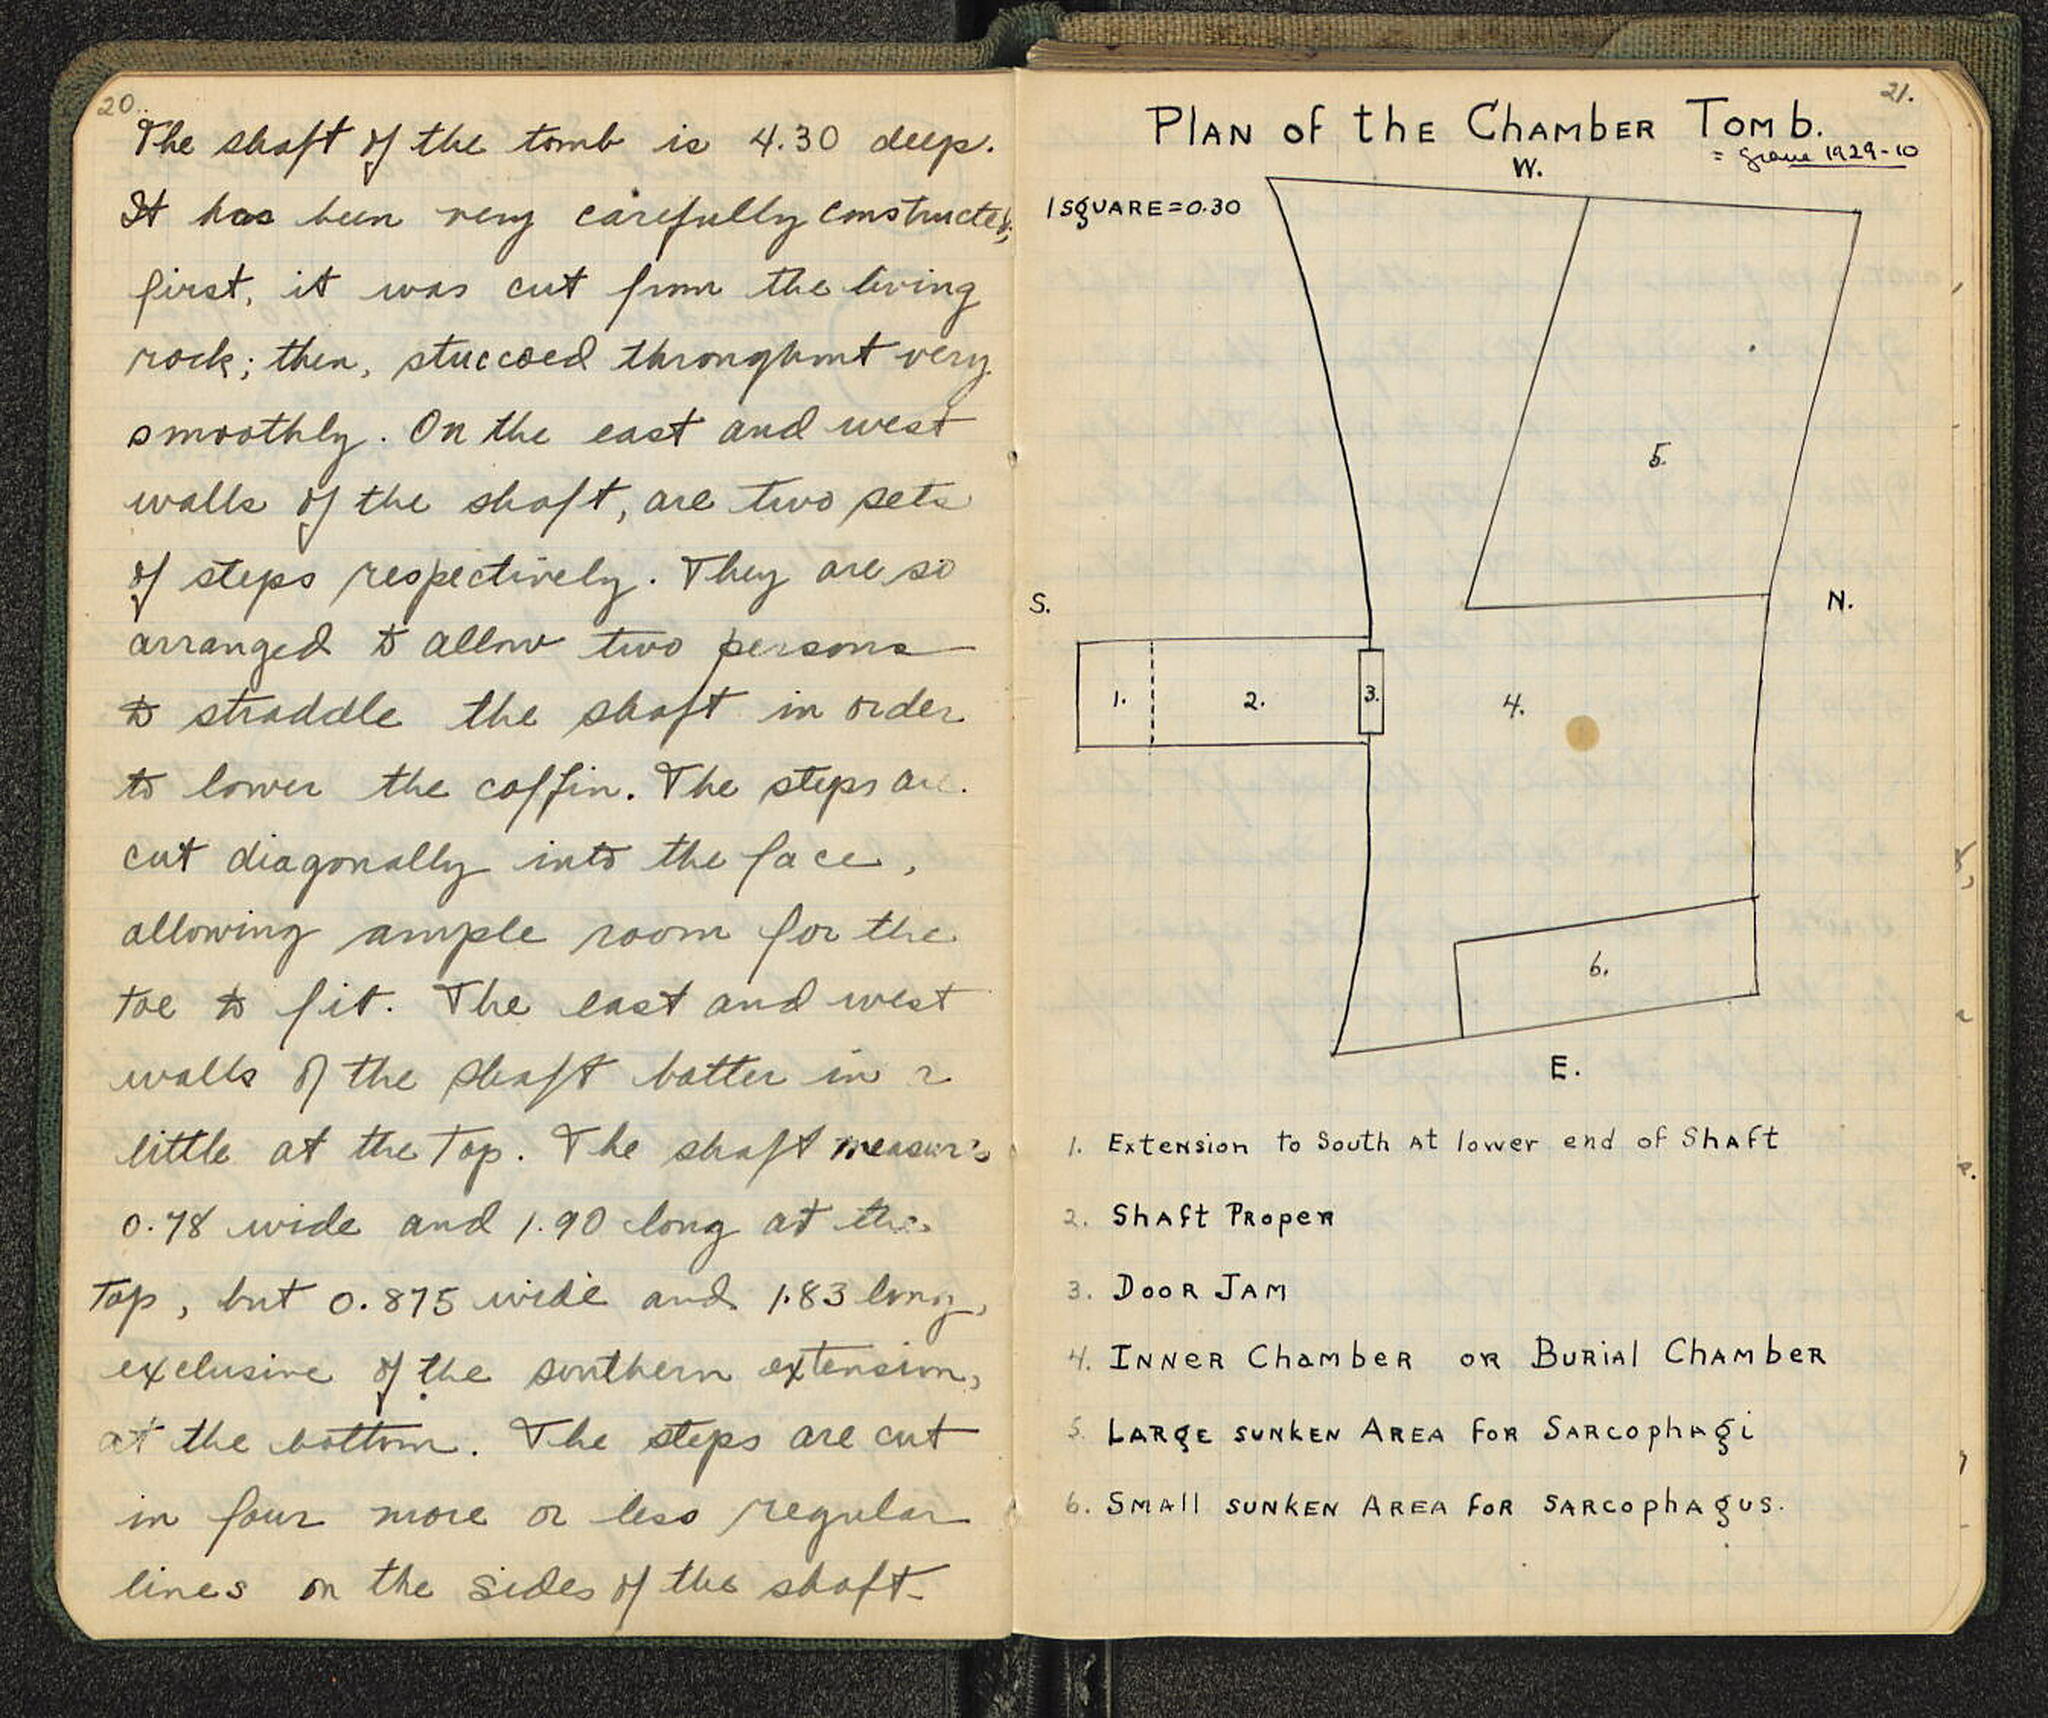 20.
The shaft of the tomb is 4.30 deep.
It has been very carefully constructed;
first, it was cut from the living
rock; then, stuccoed throughout very
smoothly. On the east and west
walls of the shaft, are two sets
of steps respectively. They are so
arranged to allow two persons
to straddle the shaft in order
to lower the coffin. The steps are
cut diagonally into the face,
allowing ample room for the
toe to fit. The east and west
walls of the shaft batter in a
little at the top. The shaft measures
0.78 wide and 1.90 long at the
top, but 0.875 wide and 1.83 long,
exclusive of the southern extension,
at the bottom. The steps are cut
in four more or less regular
lines on the sides of the shaft.
21.
Plan of the Chamber Tomb.
= grave 1929-10
W.
1 square = 0.30
5.
S.
N.
1.
2.
3.
4.
6.
E.
1. Extension to South at lower end of Shaft
2. Shaft Proper
3. Door Jam
4. Inner Chamber or Burial Chamber
5. Large sunken Area for Sarcophagi
6. Small sunken Area for Sarcophagus.